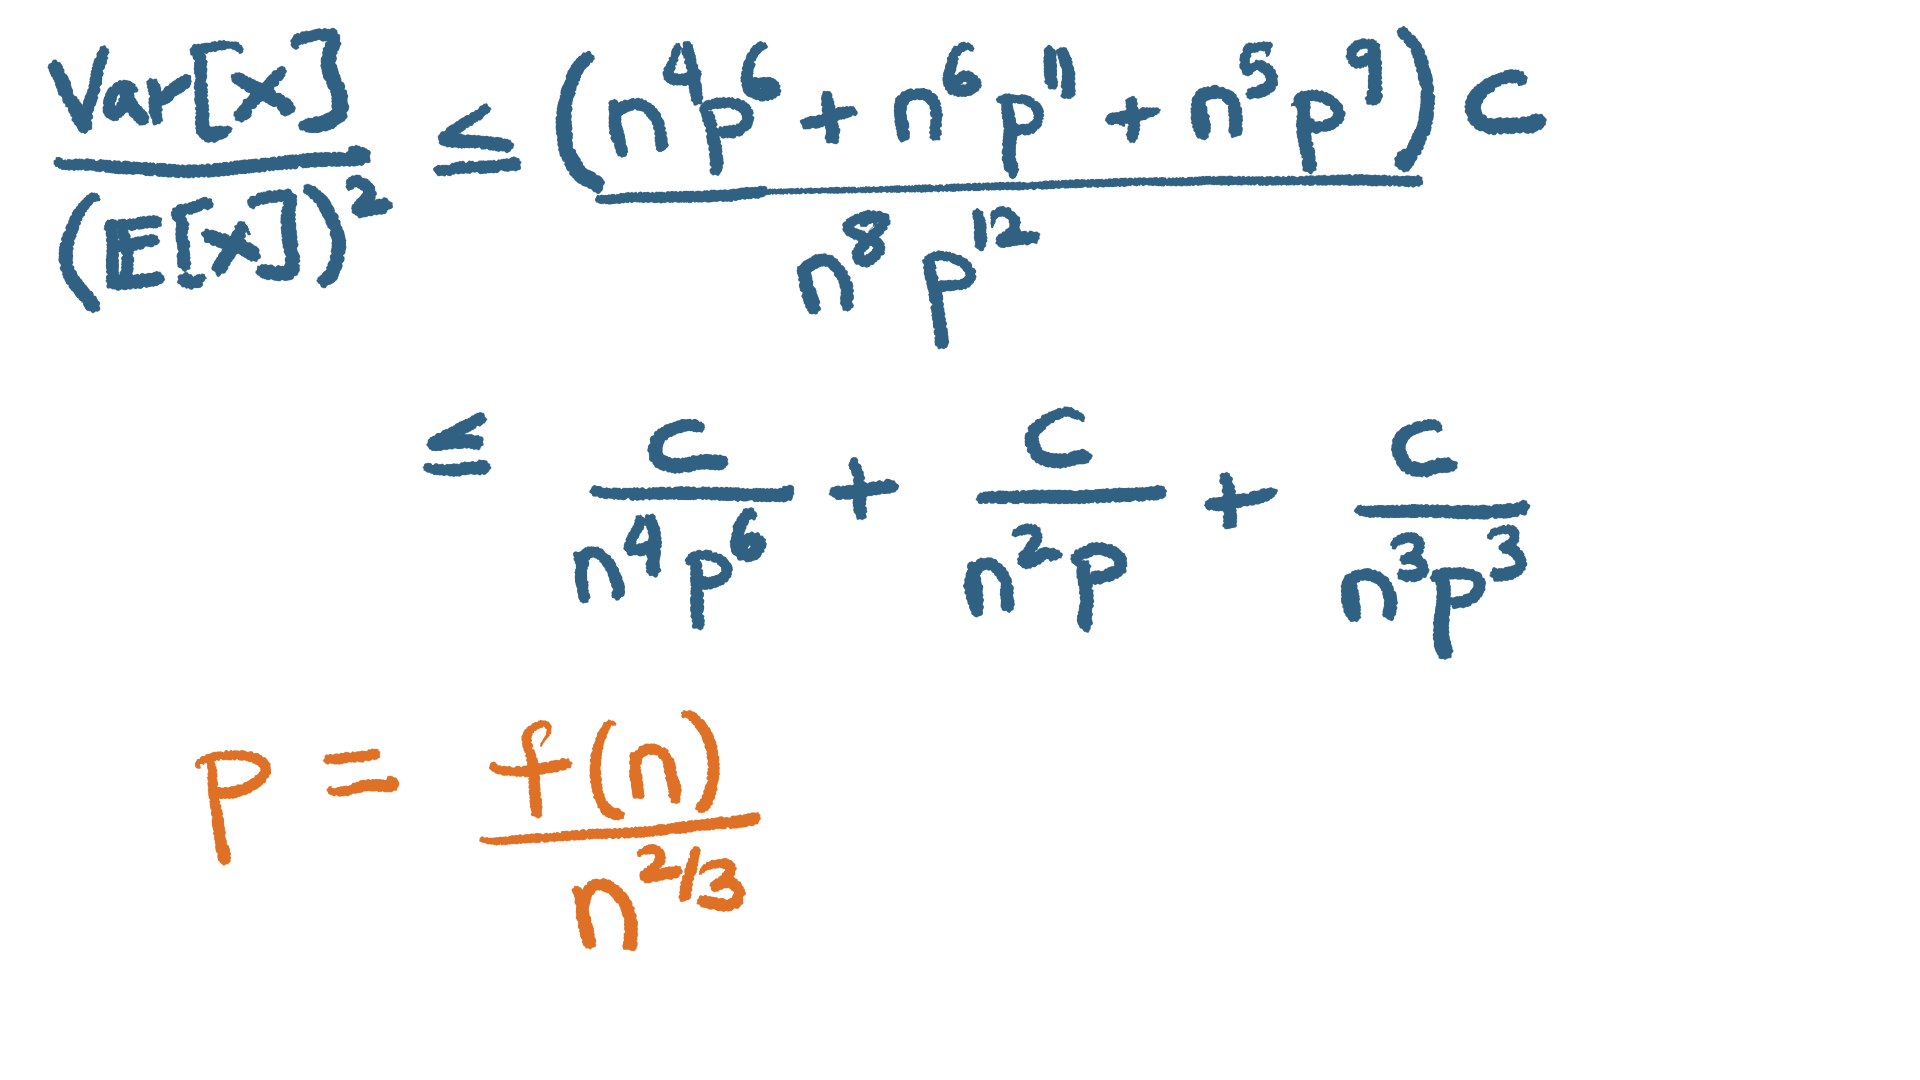 Var[x] / (E[x])² ≤ (n⁴p⁶ + n⁶p¹¹ + n⁵p⁹)C / n⁸p¹²
≤ C / n⁴p⁶ + C / n²p + C / n³p³
p = f(n) / n^2/3